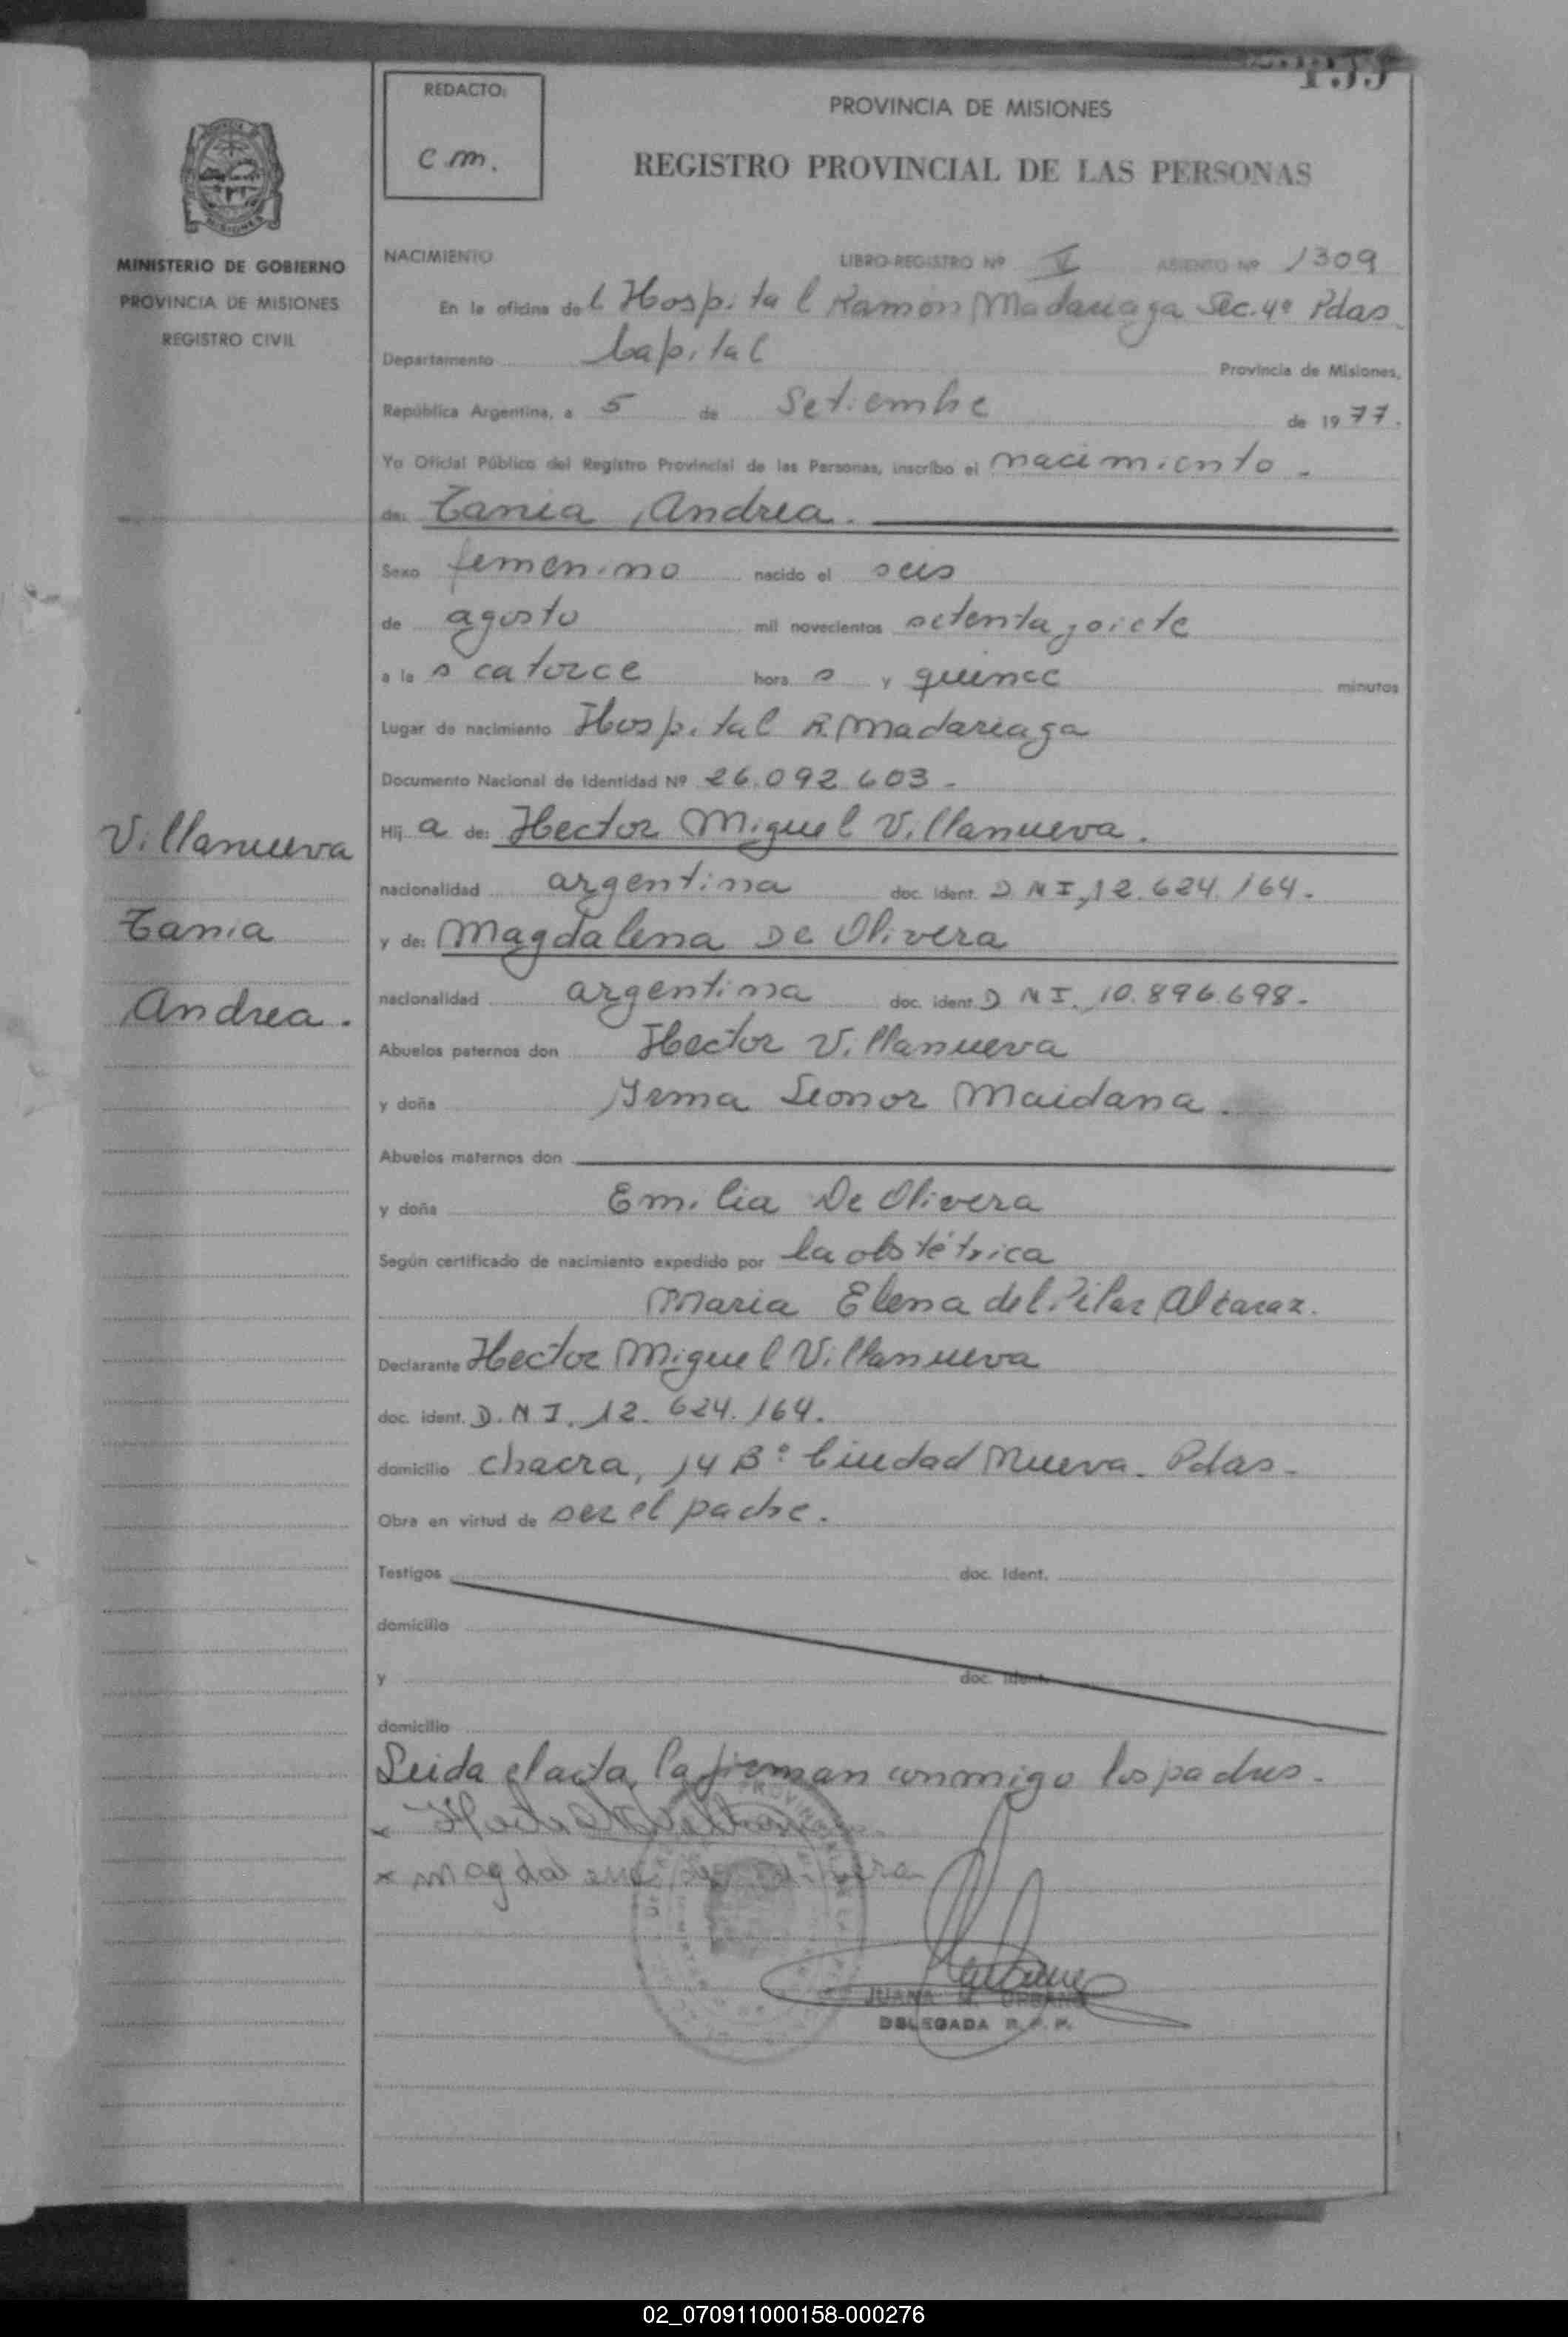 REDACTO:
C.M.
PROVINCIA DE MISIONES
REGISTRO PROVINCIAL DE LAS PERSONAS
MINISTERIO DE GOBIERNO
PROVINCIA DE MISIONES
REGISTRO CIVIL
NACIMIENTO LIBRO-REGISTRO Nº V ASIENTO Nº 1309
En la oficina del Hospital Ramón Madariaga Sec. 4ª Pdas.
Departamento Capital Provincia de Misiones,
República Argentina, a 5 de Setiembre de 1977.
Yo Oficial Público del Registro Provincial de las Personas, inscribo el nacimiento.
de: Tania, Andrea.
Sexo femenino nacido el seis
de agosto mil novecientos setenta y siete
a las catorce horas y quince minutos
Lugar de nacimiento Hospital R. Madariaga
Documento Nacional de Identidad Nº 26.092.603.-
Hija de: Hector Miguel Villanueva.
nacionalidad argentina doc. ident. D.N.I. 12.624.164.
y de: Magdalena De Olivera
nacionalidad argentina doc. ident. D.N.I. 10.896.698.
Abuelos paternos don Hector Villanueva
y doña Irma Leonor Maidana.
Abuelos maternos don
y doña Emilia De Olivera
Según certificado de nacimiento expedido por la obstétrica
Maria Elena del Pilar Alcaraz.
Declarante Hector Miguel Villanueva
doc. ident. D.N.I. 12.624.164.
domicilio chacra, 14 Bº Ciudad Nueva. Pdas.
Obra en virtud de ser el padre.
Testigos doc. Ident.
domicilio
y doc. Ident.
domicilio
Leida el acta, la firman conmigo los padres.
x Magdalena
JUANA M. URBANO
DELEGADA R. P. P.
Villanueva
Tania
Andrea.
02_070911000158-000276